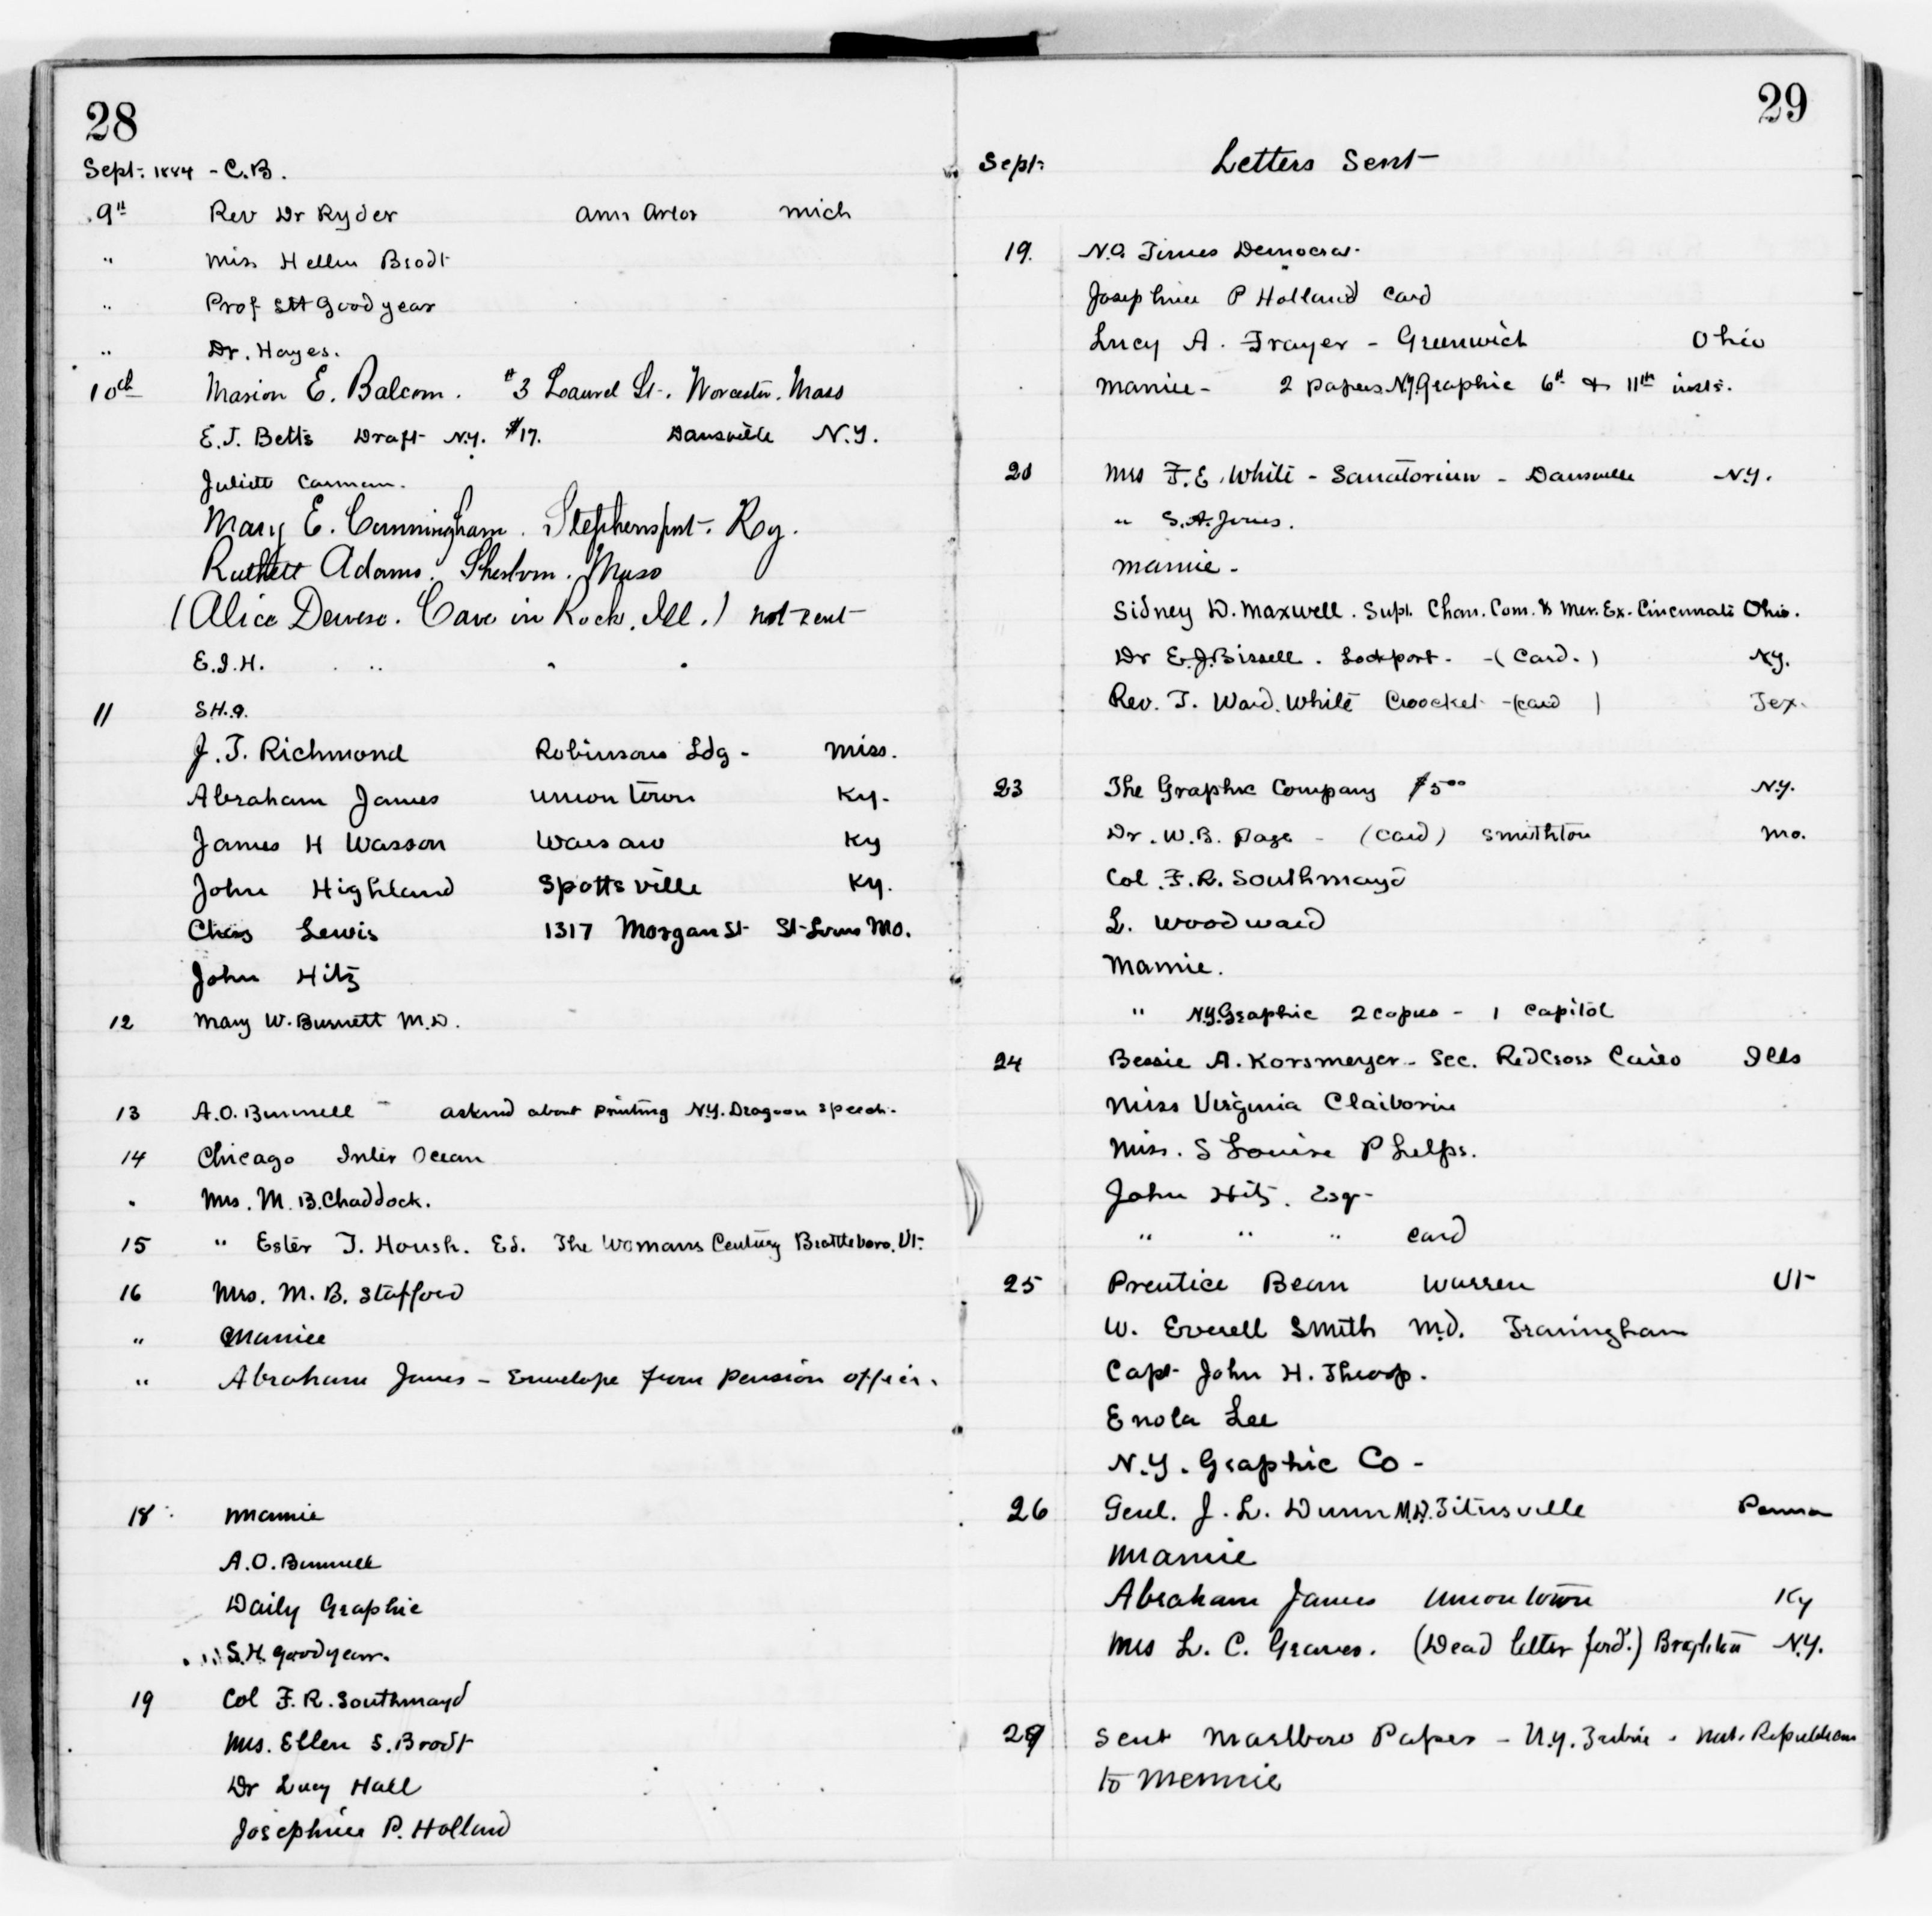 28
Sept: 1884 - C.B.
9th Rev Dr Ryder Ann Arbor Mich
" Miss Hellen Brodt
" Prof SH Goodyear
" Dr. Hayes.
10th Marion E. Balcom. #3 Laurel St. Worcester. Mass
E.J. Betts Draft N.Y. $17. Dansville N.Y.
Juliett Carman.
Mary E. Cunningham. Stephensport. Ky.
Adams. Sherborn. Mass
(Alice Deweese. Cave in Rock. Ill.) not sent
E.I.H. " " "
11 S.H.G.
J. T. Richmond Robinsons Ldg - Miss.
Abraham James Uniontown Ky.
James H Wasson Warsaw Ky
John Highland Spottsville Ky.
Chas Lewis 1317 Morgan St St-Louis Mo.
John Hitz
12 Mary W. Burnett M.D.
13 A.O. Bunnell - asked about printing N.Y. Dragoon speech.
14 Chicago Inter Ocean
" Mrs. M. B. Chaddock.
15 " Ester T. Housh. Ed. The Womans Century Brattleboro, Vt.
16 Mrs. M. B. Stafford
" Mamie
" Abraham James - Envelope from Pension office.
18 Mamie
A.O. Bunnell
Daily Graphic
S.H. Goodyear.
19 Col F. R. Southmayd
Mrs. Ellen S. Brodt
Dr Lucy Hall
Josephine P. Holland
29
Sept: Letters Sent
19. N.O. Times Democrat.
Josephine P Holland Card
Lucy A. Frayer - Greenwich Ohio
Mamie - 2 papers N.Y. Graphic 6th & 11th insts.
20 Mrs F. E. White - Sanatorium - Dansville N.Y.
" S. A. Jones.
Mamie -
Sidney D. Maxwell. Supt. Cham. Com. & Mer. Ex. Cincinnati Ohio.
Dr E. J. Bissell. Lockport. - (Card.) N.Y.
Rev. T. Ward. White Croocket - (card) Tex.
23 The Graphic Company $5.00 N.Y.
Dr. W. B. Page - (Card) Smithton Mo.
Col. F. R. Southmayd
L. Woodward
Mamie.
" N.Y. Graphic 2 copies - 1 Capitol
24 Bessie A. Korsmeyer - Sec. Red Cross Cairo Ills
Miss Virginia Claiborne
Miss. S Louise Phelps.
John Hitz. Esq -
" " " card
25 Prentice Bean Warren Vt
W. Everell Smith M.D. Framingham
Capt John H. Throop.
Enola Lee
N.Y. Graphic Co -
26 Genl. J. L. Dunn M.D. Titusville Penna
Mamie
Abraham James Uniontown Ky
Mrs L. C. Graves. (Dead letter ford.) N.Y.
29 Sent Marlboro Papers - N.Y. Tribune. Nat. Republican
to Mennie